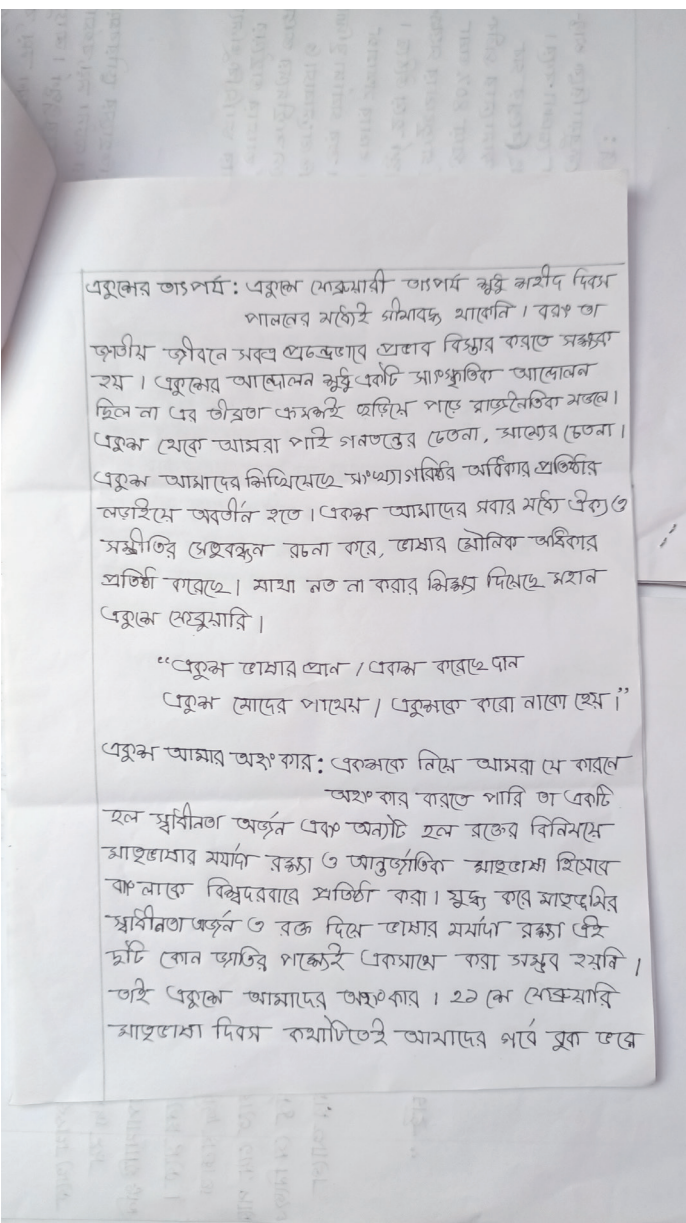 একুশের তাৎপর্য: একুশে ফেব্রুয়ারী তাৎপর্য শুধু শহীদ দিবস
পালনের মধ্যেই সীমাবদ্ধ থাকেনি। বরং তা
জাতীয় জীবনে সর্বত্র প্রচন্ডভাবে প্রভাব বিস্তার করতে সক্ষম
হয়। একুশের আন্দোলন শুধু একটি সাংস্কৃতিক আন্দোলন
ছিল না এর তীব্রতা ক্রমশই ছড়িয়ে পড়ে রাজনৈতিক মন্ডলে।
একুশ থেকে আমরা পাই গনতন্ত্রের চেতনা, সাম্যের চেতনা।
একুশ আমাদের শিখিয়েছে সংখ্যাগরিষ্ঠের অধিকার প্রতিষ্ঠার
লড়াইয়ে অবতীর্ন হতে। একুশ আমাদের সবার মধ্যে ঐক্য ও
সম্প্রীতির সেতুবন্ধন রচনা করে, ভাষার মৌলিক অধিকার
প্রতিষ্ঠা করেছে। মাথা নত না করার শিক্ষা দিয়েছে মহান
একুশে ফেব্রুয়ারি।
“একুশ ভাষার প্রান / একুশ করেছে দান
একুশ মোদের পাথেয় / একুশকে করো নাকো হেয়।”
একুশ আমার অহংকার: একুশকে নিয়ে আমরা যে কারণে
অহংকার করতে পারি তা একটি
হল স্বাধীনতা অর্জন এবং অন্যটি হল রক্তের বিনিময়ে
মাতৃভাষার মর্যাদা রক্ষা ও আন্তর্জাতিক মাতৃভাষা হিসেবে
বাংলাকে বিশ্বদরবারে প্রতিষ্ঠা করা। যুদ্ধ করে মাতৃভূমির
স্বাধীনতা অর্জন ও রক্ত দিয়ে ভাষার মর্যাদা রক্ষা এই
দুটি কোন জাতির পক্ষেই একসাথে করা সম্ভব হয়নি।
তাই একুশে আমাদের অহংকার। ২১ শে ফেব্রুয়ারি
মাতৃভাষা দিবস কথাটিতেই আমাদের গর্বে বুক ভরে